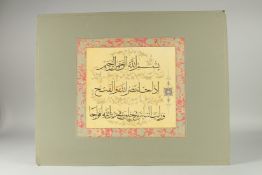 بسم الله الرحمن الرحيم
إذا جاء نصر الله والفتح
ورأيت الناس يدخلون في دين الله أفواجا